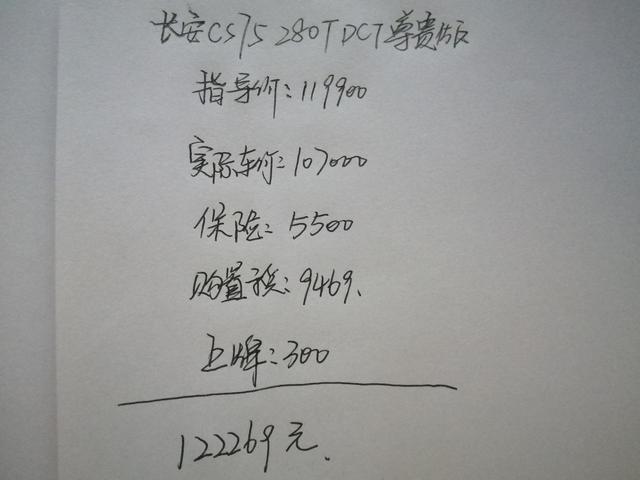 长安CS75 280T DCT尊贵版
指导价:119900
实际车价:107000
保险:5500
购置税:9469.
上牌:300
122269元.